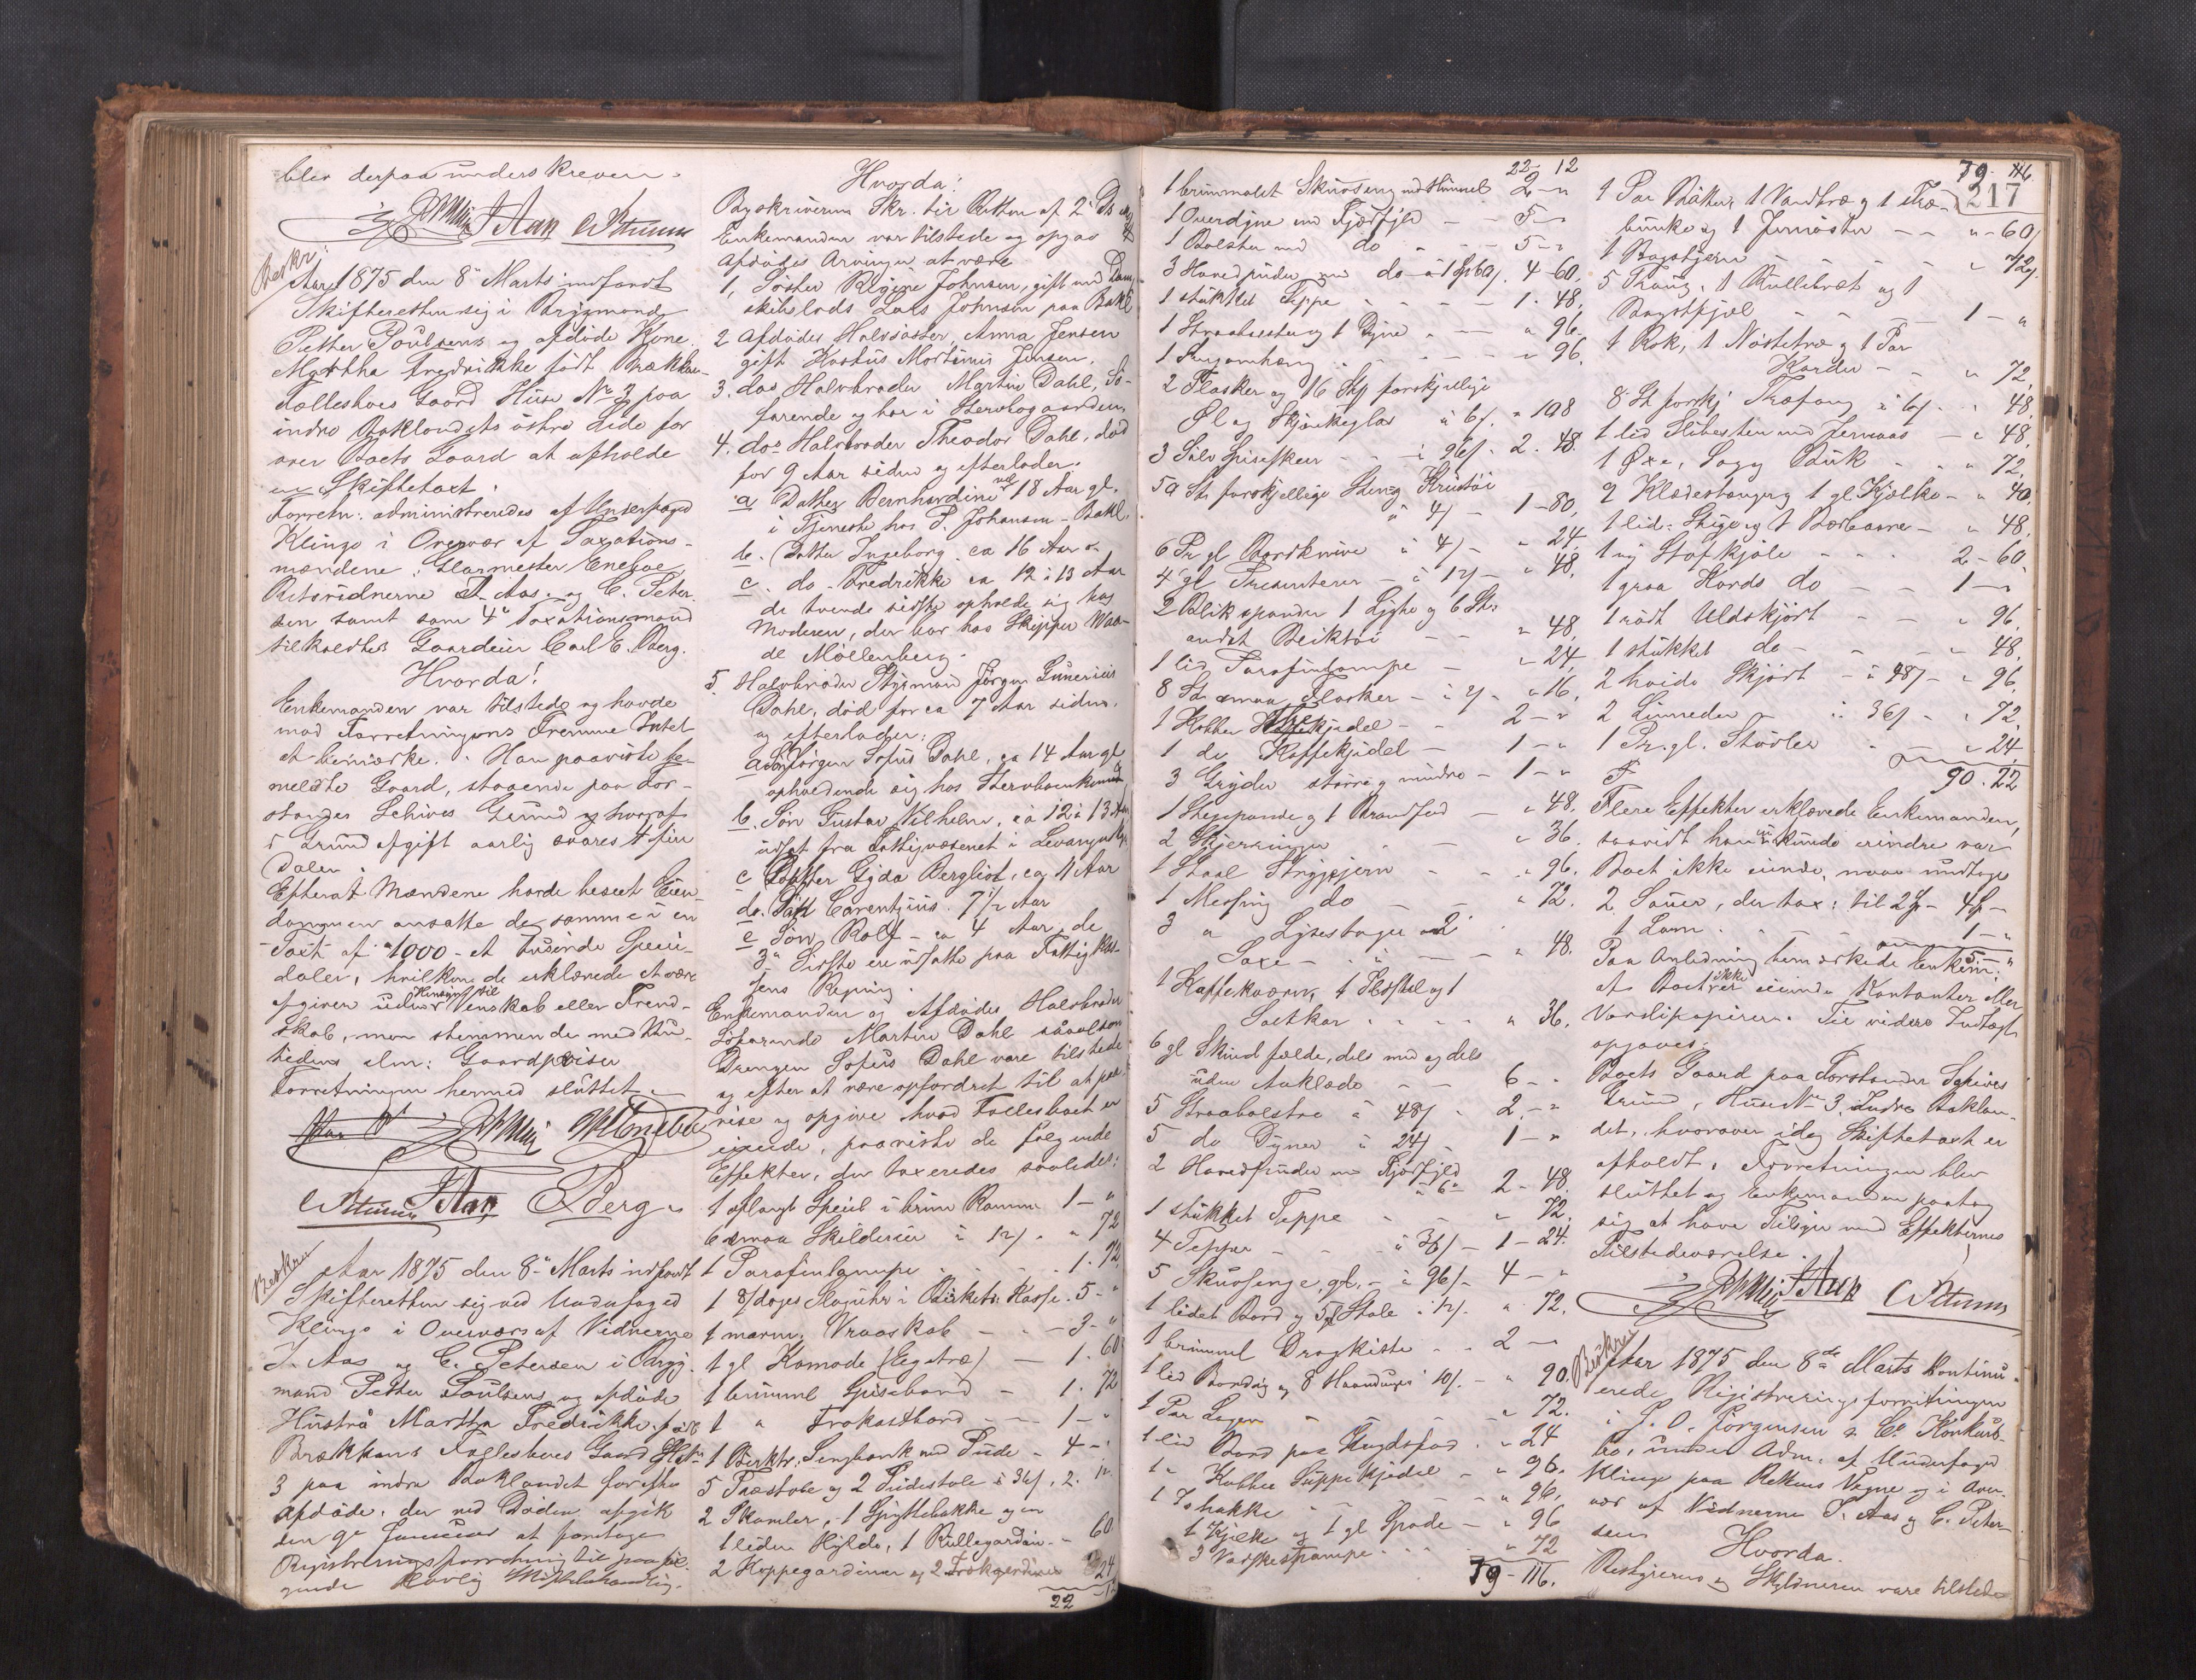 blev derpaa underskreven.
Aas CPetersen
Beskr:
Aar 1875 den 8de Marts indfandt
Skifteretten sig i Brygmand
Petter Poulsens og afdøde Kone
Martha Fredrikke født Brækkan
Fælleshoes Gaard Huse No 3 paa
indre Baklandets østre Side for
over Boets Gaard at afholde
en Skiftetaxt.
Forretn: administreredes af Underfoged
Klingo i Overvær af Taxations-
mændene: Glarmester Eneboe
Retsvidnerne Aas og C. Peter-
sen samt som 4de Taxationsmand
tilkaldtes Gaardeier Carl E. Berg.
Hvorda!
Enkemanden var tilstede og havde
mod Forretningens Fremme Intet
at bemærke. Han paaviste be-
meldte Gaard, staaende paa For-
stander Schives Grund og hvoraf
i Grundafgift aarlig svares 4 fire
Daler.
Efterat Mændene havde beseet Eien-
dommen ansatte de samme i en
Taxt af 1000 - et tusinde Specie-
daler, hvilken de erklærede at være
afgiven uden Hensyn til Venskab eller Frend-
skab, men stemmende med Nu-
tidens alm: Gaardpriser
Forretningen hermed sluttet.
CPetersen Aas CBerg.
Beskrev
Aar 1875 den 8de Marts indfandt
Skifteretten sig ved Underfoged
Klingo i Overvær af Vidnerne
Aas og C. Petersen i Bryg-
mand Petter Poulsens og afdøde
Hustru Martha Fredrikke født
Brækkans Fællesboes Gaard
3 paa indre Baklandet for efter
Afdøde, der ved Døden afgik
den 9de Januar at foretage
Registreringsforretning til paaføl-
gende lovlig Skiftebehandling.
Hvorda:
Byskriverens Skr. til Retten af 2
Enkemanden var tilstede og opgav
Afdødes Arvinger at være
1, Søster Regine Johnsen, gift med Dam-
skibslods Lars Johnsen paa Bakl
2 Afdødes Halvsøster, Anna Jensen
gift Mortinus Jensen.
3. dos Halvbroder Martin Dahl, Sø-
farende og bor i Stervbogaarden,
4. dos Halvbroder Theodor Dahl, død
for 9 Aar siden og efterlader.
a Datter Bernhardine 18 Aar gl.
i Tjeneste hos P. Johansen - Bakl.
b. Datter Ingeborg ca 16 Aar
c. do - Fredrikke ca 12 à 13 Aar
de tvende sidste opholde sig hos
Moderen, der bor hos Skipper
Møllenberg.
5. Halvbroder Styrmand Jørgen Gunerius
Dahl, død for ca 7 Aar siden.
og efterlader:
a Søn Jørgen Sofus Dahl, ca 14 Aar gl
opholdende sig hos Stervboenkemand
b. Søn Gustav Vilhelm, ca 12 à 13 Aar
udsat fra Fattigvæsenet i Levanger
c Datter Gyda Bergliot, ca 11 Aar
d. Søn Carentzius. 7 1/2 Aar
e Søn Rolf - ca 4 Aar, de
3de Sidste ere udsatte paa Fattigkas-
sens Regning.
Enkemanden og Afdødes Halvbroder
Søfarende Martin Dahl saavelsom
Drengen Sofus Dahl vare tilstede
og efter at være opfordret til at paa-
vise og opgive hvad Fællesboet er
eiende, paaviste de følgende
Effekter, der taxeredes saaledes:
1 aflangt Speil i brun Ramme 1 - "
6 smaa Skilderier à 12/. " 72
1 Parafinlampe 1. 72
1 8/dages Slaguhr i Birketr: Kasse. 5 - "
1 marm. Vraaskab 3 - "
1 gl Komode (Egetræ) 1. 60
1 brunml Spisebord - 1. 72
1 " Frokostbord 1 - "
1 Birktr. Sengbænk med Pude - 4 - "
5 Træstole og 2 Pindestole à 36/. 2. 12.
2 Skamler, 1 Spyttebakke og en
1 liden Hylde, 1 Rullegardin - 60
2 Kappegardiner og 2 Trækgardiner 24
22 12
22 12
1 brunmalet Skuvseng med Himmel 2 - "
1 Overdyne med Fjærfyld - - 5 -
1 Bolster med do - - 5 - "
3 Hovedpuder med do à 1 Sp 60/. 4 - 60.
1 stukket Teppe - 1. 48.
1 og 1 Dyne - " 96.
1 Sengomhæng - " 96.
2 Flasker og 16 Stk forskjellige
Øl og Skjænkeglas à 6/. " 108
3 Sølv Spiseskeer - à 96/. 2. 48.
50 St forskjellige Stentøi
à 4/ - 1 - 80.
6 Pr gl Bordknive à 4/ - " 24.
4 gl Presenterer à 12/ - " 48.
2 Blikspande 1 Lygte og 6 Stk
andet Bliktøi " 48.
1 lid Parafinlampe - " 24.
8 St smaa Flasker - à 2/ - " 16.
1 Kobber Thekjedel - 2 - "
1 do Kaffekjedel - 1 - "
3 Gryder større og mindre - 1 - "
1 Stegepande og 1 Brandfad - " 48.
2 " 36.
1 Staal Strygejern - " 96.
1 Messing do - " 72.
3 " Lysestager
Saxe - " 48.
1 Kaffekværn, 1 og 1
Saltkar " 36.
6 gl Skindfælde, dels med og dels
uden Aaklæde 6 - "
5 Straabolstre à 48/ 2 - "
5 do Dyner à 24/ - 1 - "
2 Hovedpuder med Fjærfyld 2 - 48.
1 stukket Teppe - " 72.
4 Tepper - à 36/ - 1 - 24.
5 Skuvsenge, gl. à 96/ - 4 - "
1 lidet Bord og 5 Stole " 72.
1 brunml Dragkiste - 2 -
1 lid og 8 à 10/. - " 90.
1 Par Lagen " 72.
1 lid Bord paa " 24
1 " Kobber Suppekjedel - " 96.
1 Ishakke - " 96.
1 Kjelke og 1 gl Spade - " 96
3 Vadskestampe " 72
79 - 116.
79. 116
217
1 Par Bøtter, 1 Vandtræ og 1 Træ-
bunke og 1 - - " - 60/
1 Bagstjern " 72/.
5 Traug, 1 Rullebræt og 1
Bagstfjæl - 1 - "
1 Rok, 1 Nøstetræ og 1 Par
Karder - " 72.
8 St forskj Træfang à 6/ - " 48.
1 lid Slibesten med - " 48.
1 Øxe, Sag og Buk - " 72.
2 Klædestænger og 1 gl Kjælke - " 40.
1 lid. Stige og 1 Bærbaare - " 48.
1 ny Stofkjole 2 - 60.
1 graa do - 1 - "
1 rødt Uldskjørt - " 96.
1 stukket do - " 48.
2 hvide Skjørt - à 48/ - " 96.
2 Linneder à 36/ - " 72.
1 Pr. gl. Støvler " 24.
90. 22
Flere Effekter erklærede Enkemanden,
saavidt han nu kunde erindre var
Boet ikke eiende, maa undtages
2 Sauer, der tax: til 2 Sp - 4 Sp -
1 Lam 1 - "
5 - "
Paa Anledning bemærkede Enkem:
at Boet ikke er eiende Kontanter eller
Værdipapirer. Til videre Indtægt
opgaves:
Boets Gaard paa Forstander Schives
Grund, Huse No 3, Indre Baklan-
det, hvorover idag Skiftetaxt er
afholdt. Forretningen blev
sluttet og Enkemanden paatog
sig at have Tilsyn med Effekternes
Tilstedeværelse.
Aas CPetersen
Beskrev
Aar 1875 den 8de Marts kontinu-
erede Registreringsforretningen
i J. O. Jørgensen & Co Konkurs-
bo, under Adm. af Underfoged
Klingo paa Rettens Vegne og i Over-
vær af Vidnerne Aas og C. Peter-
sen
Hvorda.
Bestyreren og Skyldneren vare tilstede